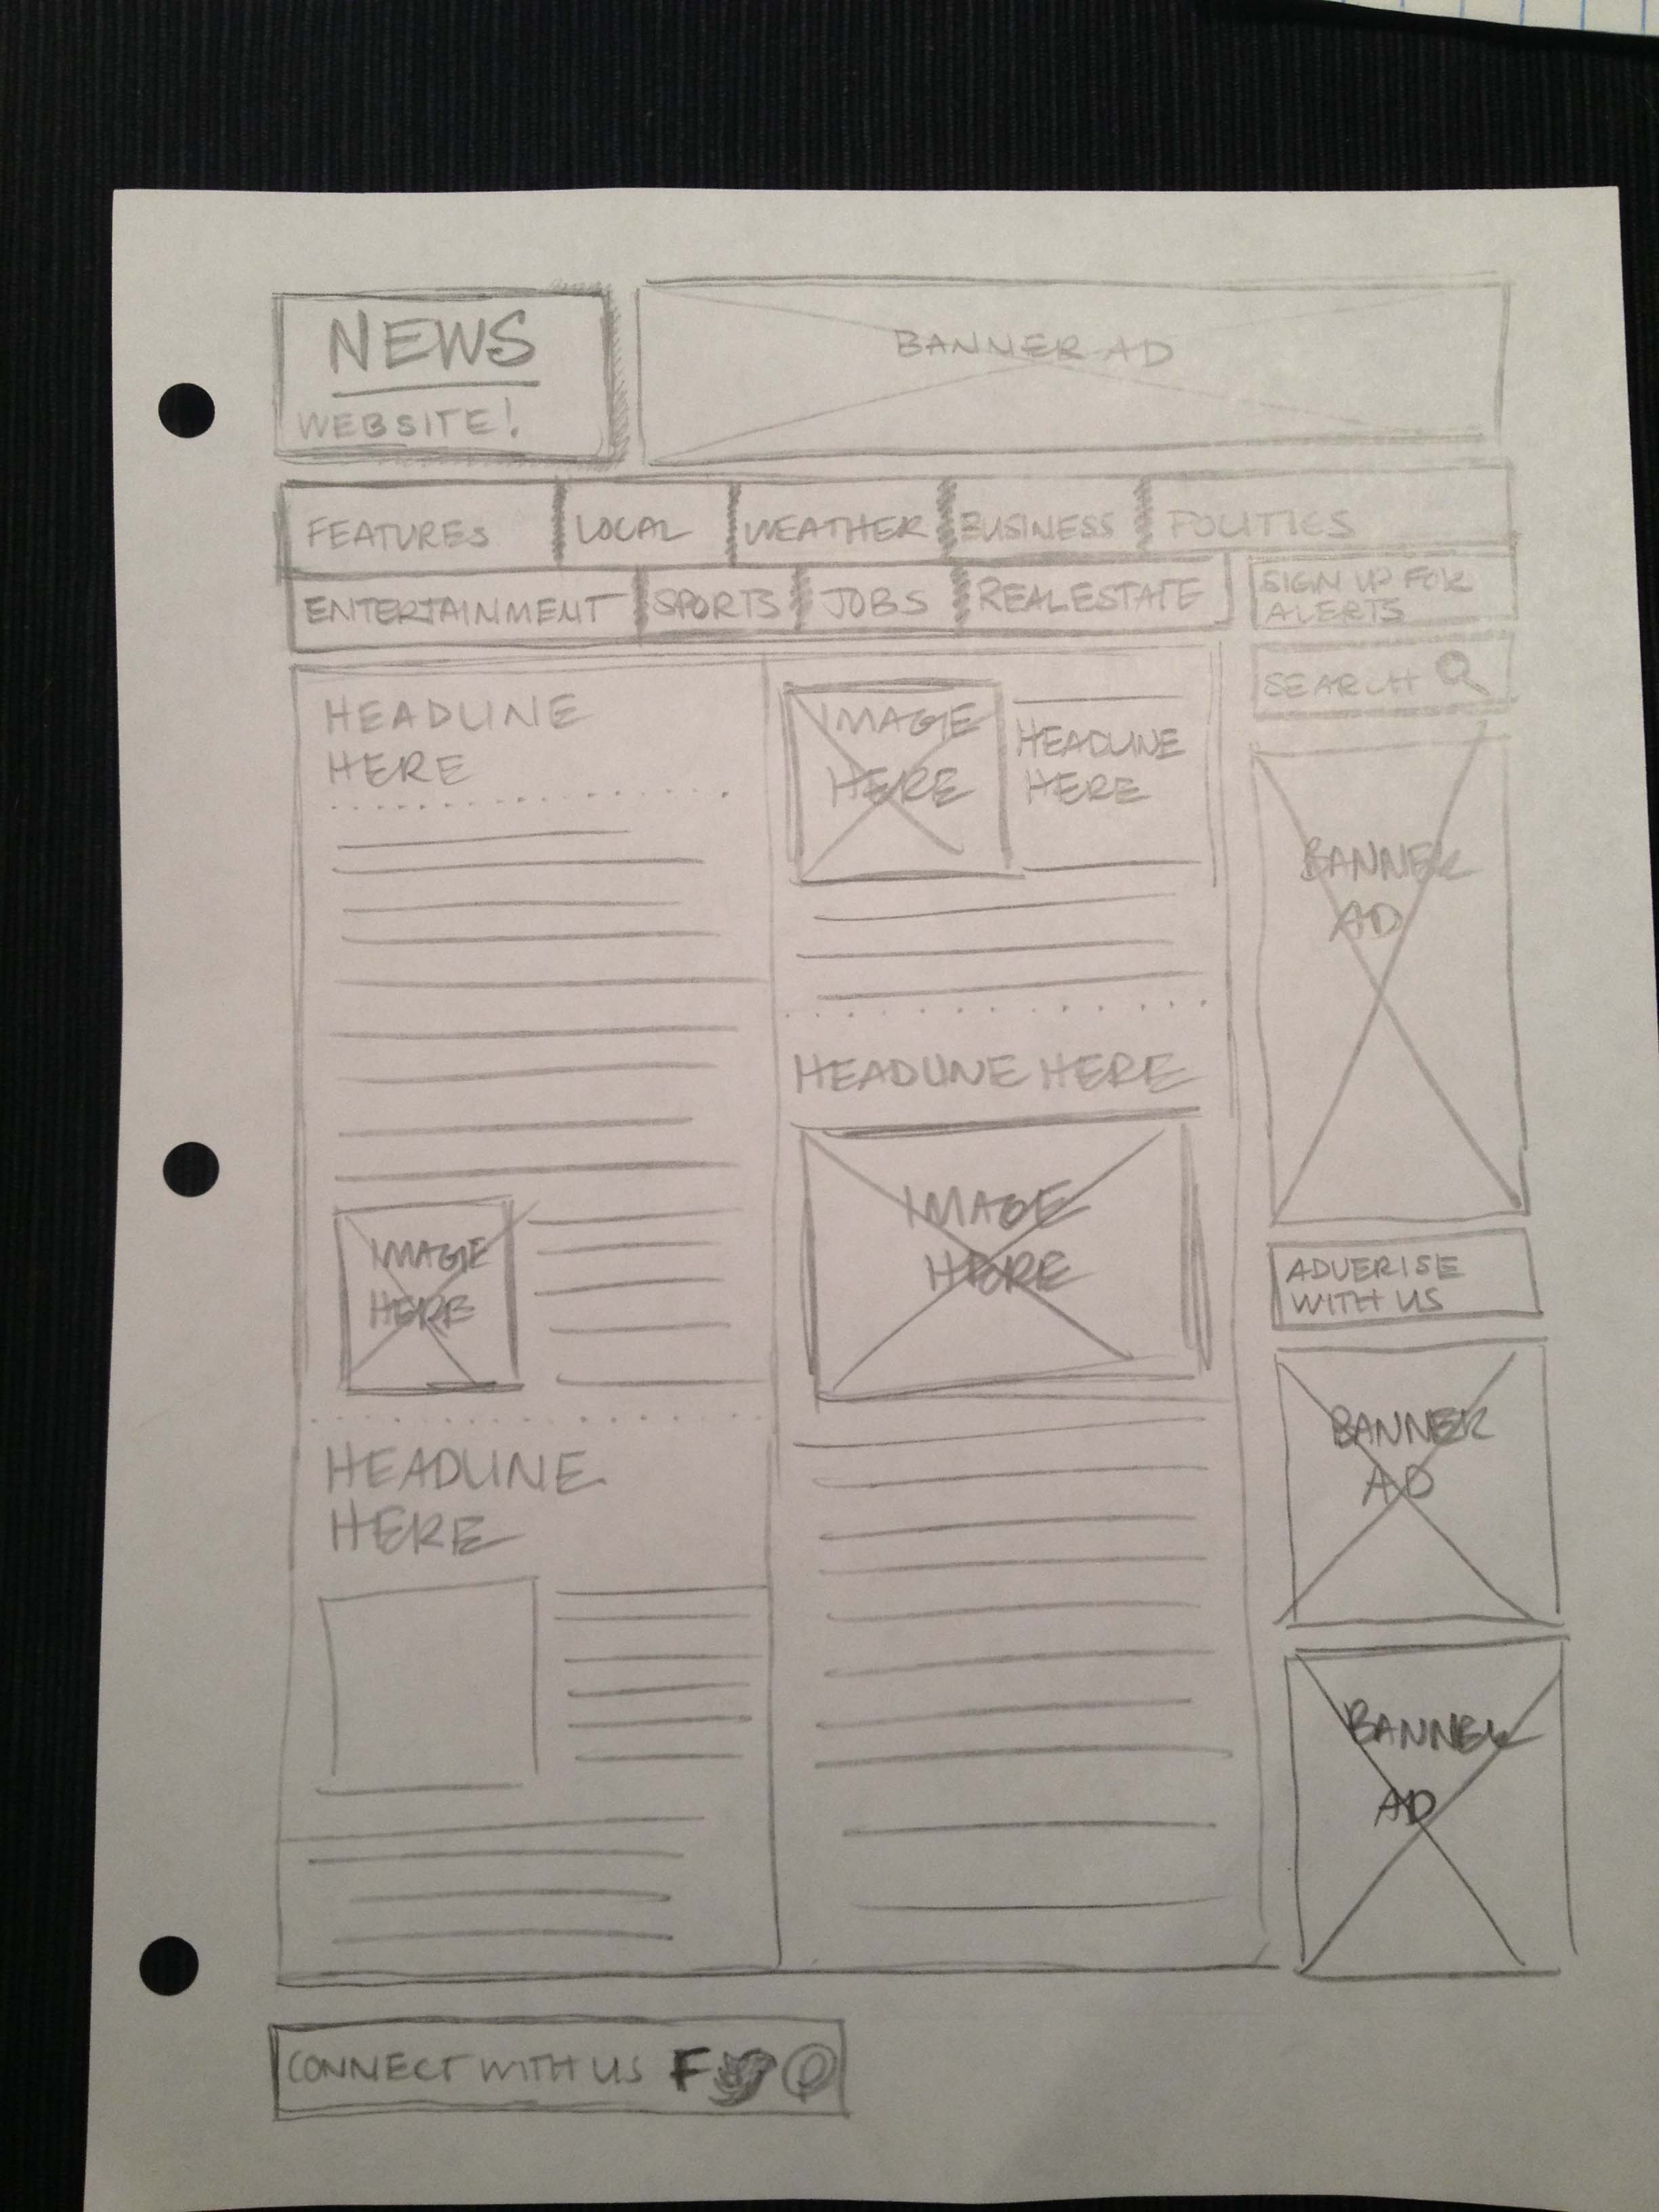 NEWS
WEBSITE!
BANNER AD
FEATURES LOCAL WEATHER BUSINESS POLITICS
ENTERTAINMENT SPORTS JOBS REAL ESTATE
SIGN UP FOR
ALERTS
SEARCH
HEADLINE
HERE
IMAGE
HERE
HEADLINE
HERE
BANNER
AD
HEADLINE HERE
IMAGE
HERE
IMAGE
HERE
ADVERISE
WITH US
BANNER
AD
HEADLINE
HERE
BANNER
AD
CONNECT WITH US F